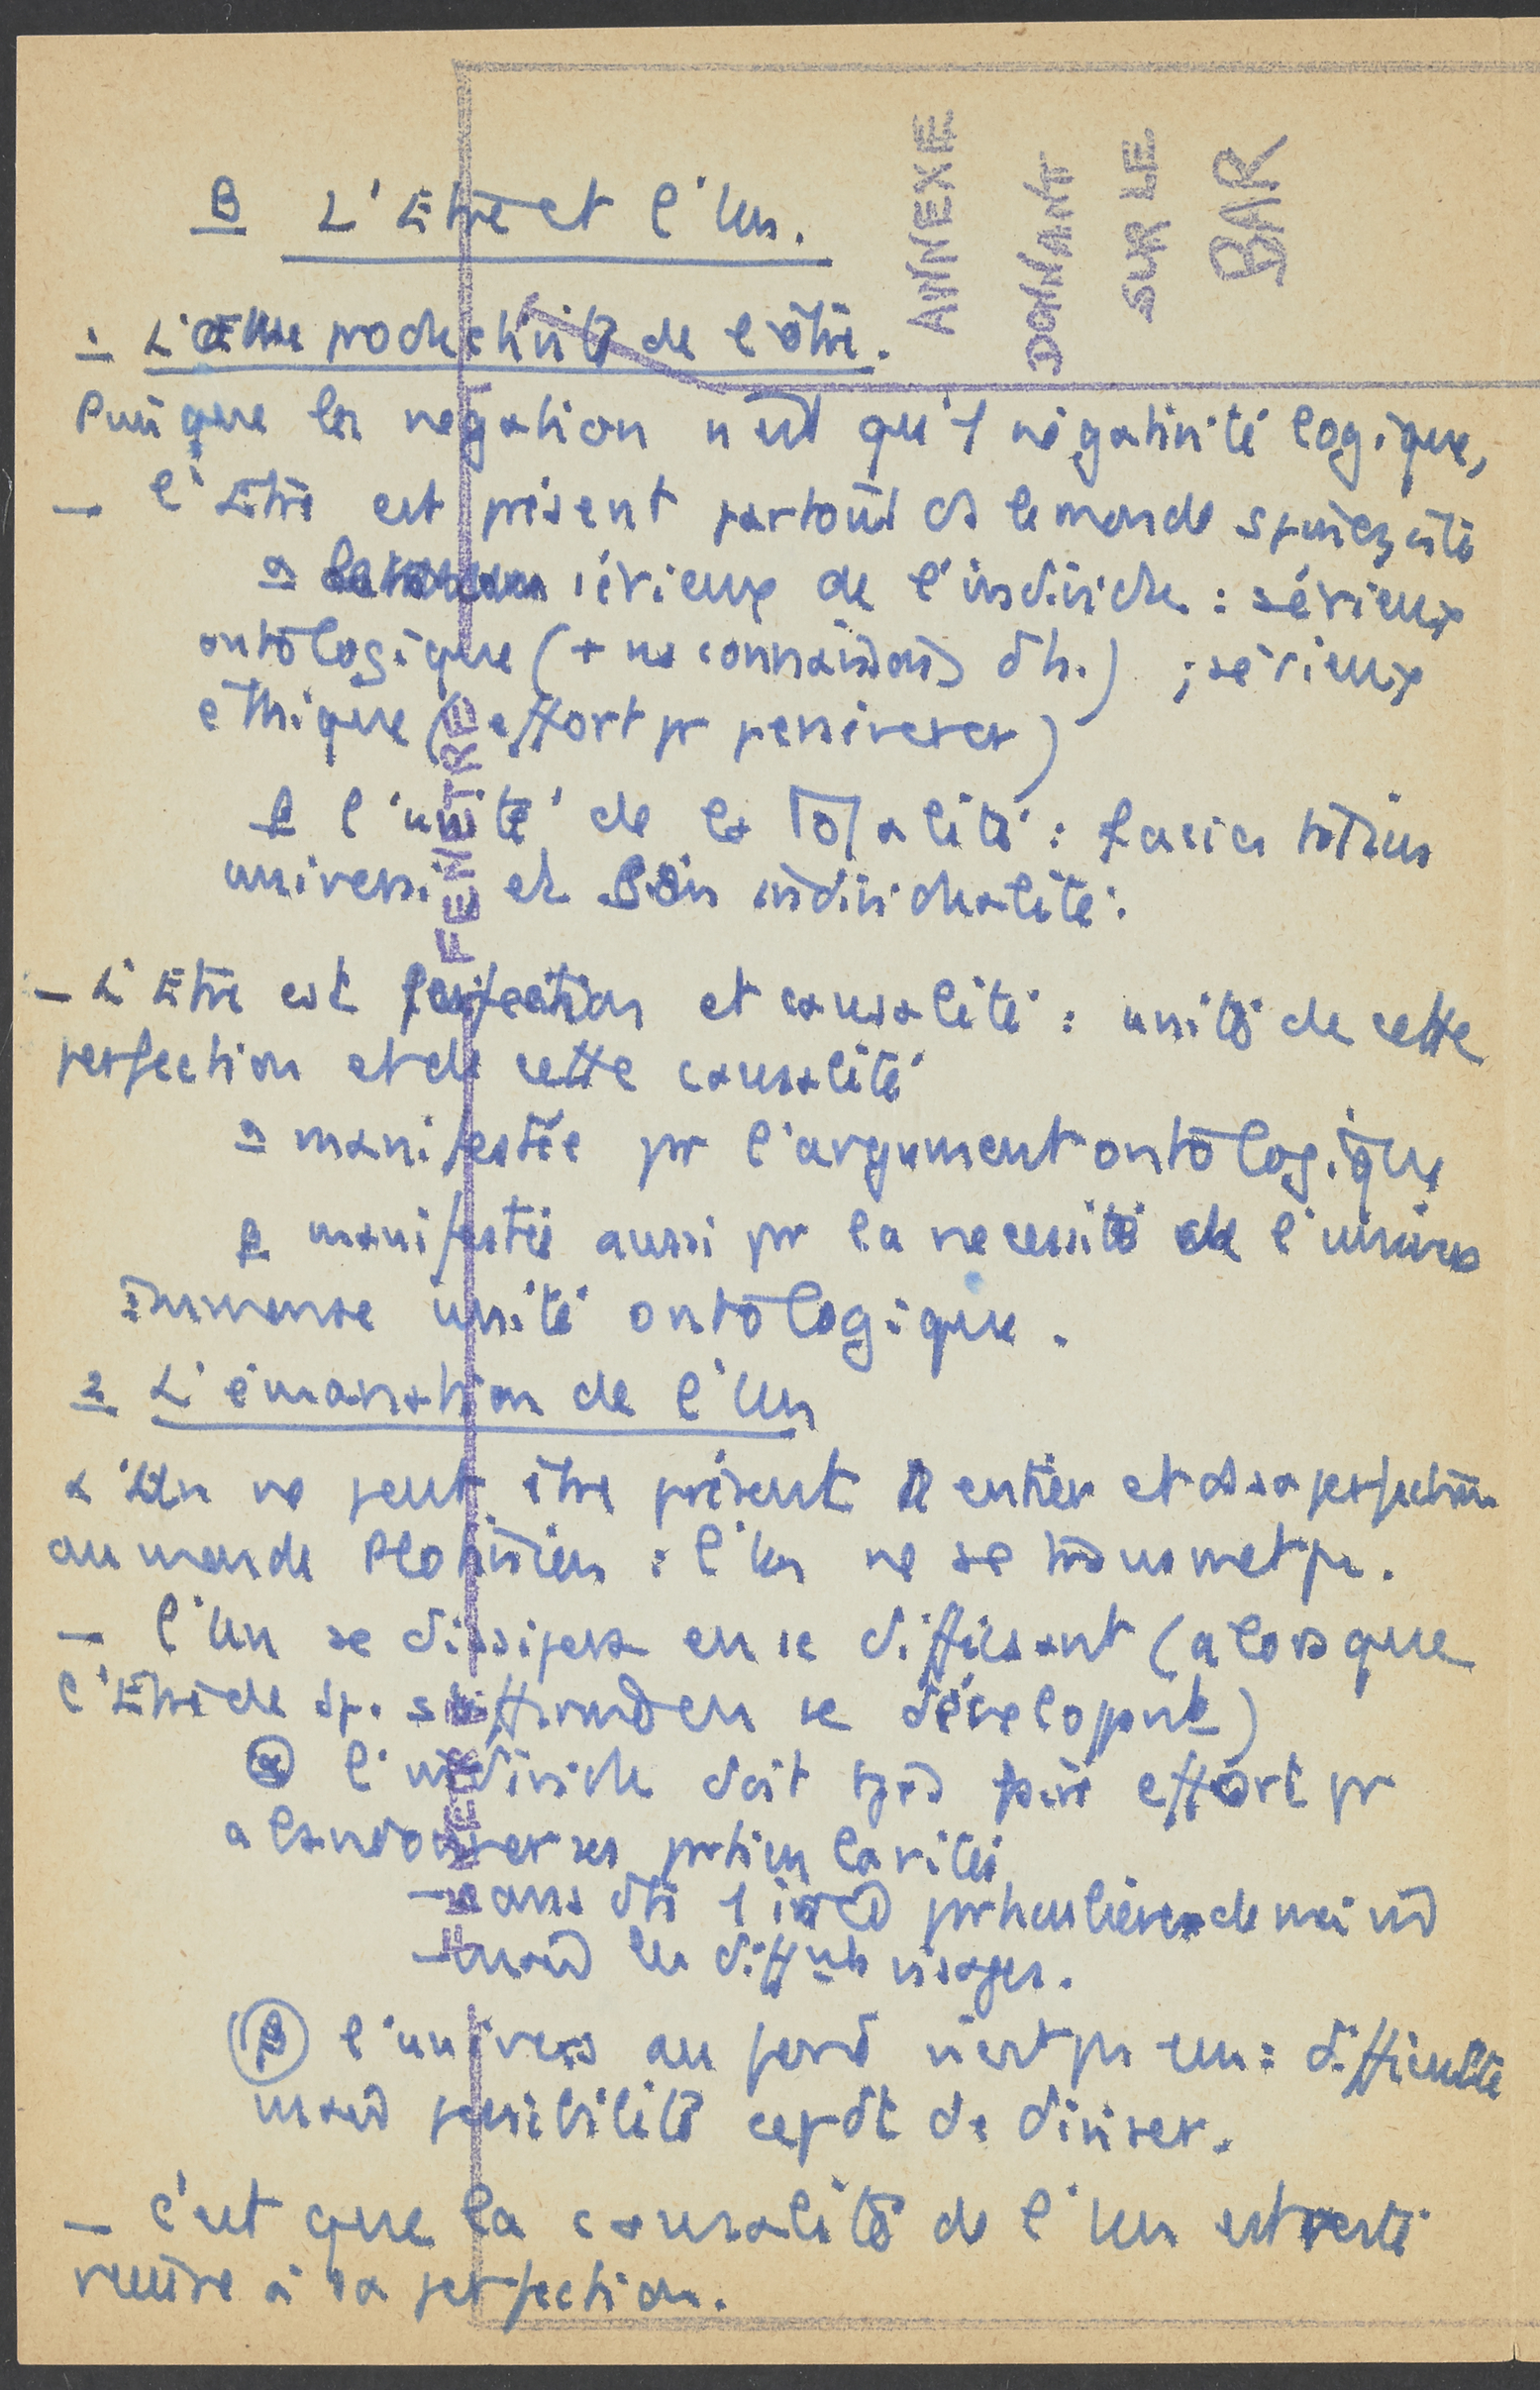 B L'Etre et l'Un.
1 L'ê productivité de l'être.
Puisque la négation n'est qu'1 négativité logique,
— l'Etre est présent partout ds le monde spinoziste
α sérieux de l'individu : sérieux
ontologique (+ ns connaissons dh.) ; sérieux
éthique (effort pr persévérer)
β l'unité de la Totalité : facies totius
universi et son individualité.
— L'Etre est perfection et causalité : unité de cette
perfection et de cette causalité
α manifestée pr l'argument ontologique
β manifestée aussi pr la nécessité de l'univers
immense unité ontologique.
2 L'émanation de l'Un
L'Un ne peut être présent entier et ds sa perfection
au monde Plotinien : l'Un ne se transmet ps.
— l'Un se dissipera en se diffusant (alors que
l'Etre de Sp. s' en se )
α l'individu doit tjrs faire effort pr
abandonner ses particularités
— ans 1 particulière de moi
— mais les difftes visages.
β l'univers au fond n'est ps un : difficulté
mais possibilité cepdt de diviser.
— c'est que la causalité de l'Un est
à sa perfection.
ANNEXE
DONNANT
SUR LE
BAR
FENETRE
FENETRE